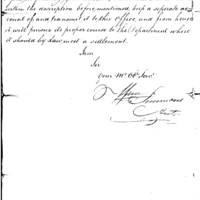 within the description before mentioned, keep a separate ac
count of and transmit it to this Office, and from hence
it will pursue its proper course to the Department where
it should by Law meet a settlement.
I am
Sir
your Mo Ob Serv
Wm Simmons